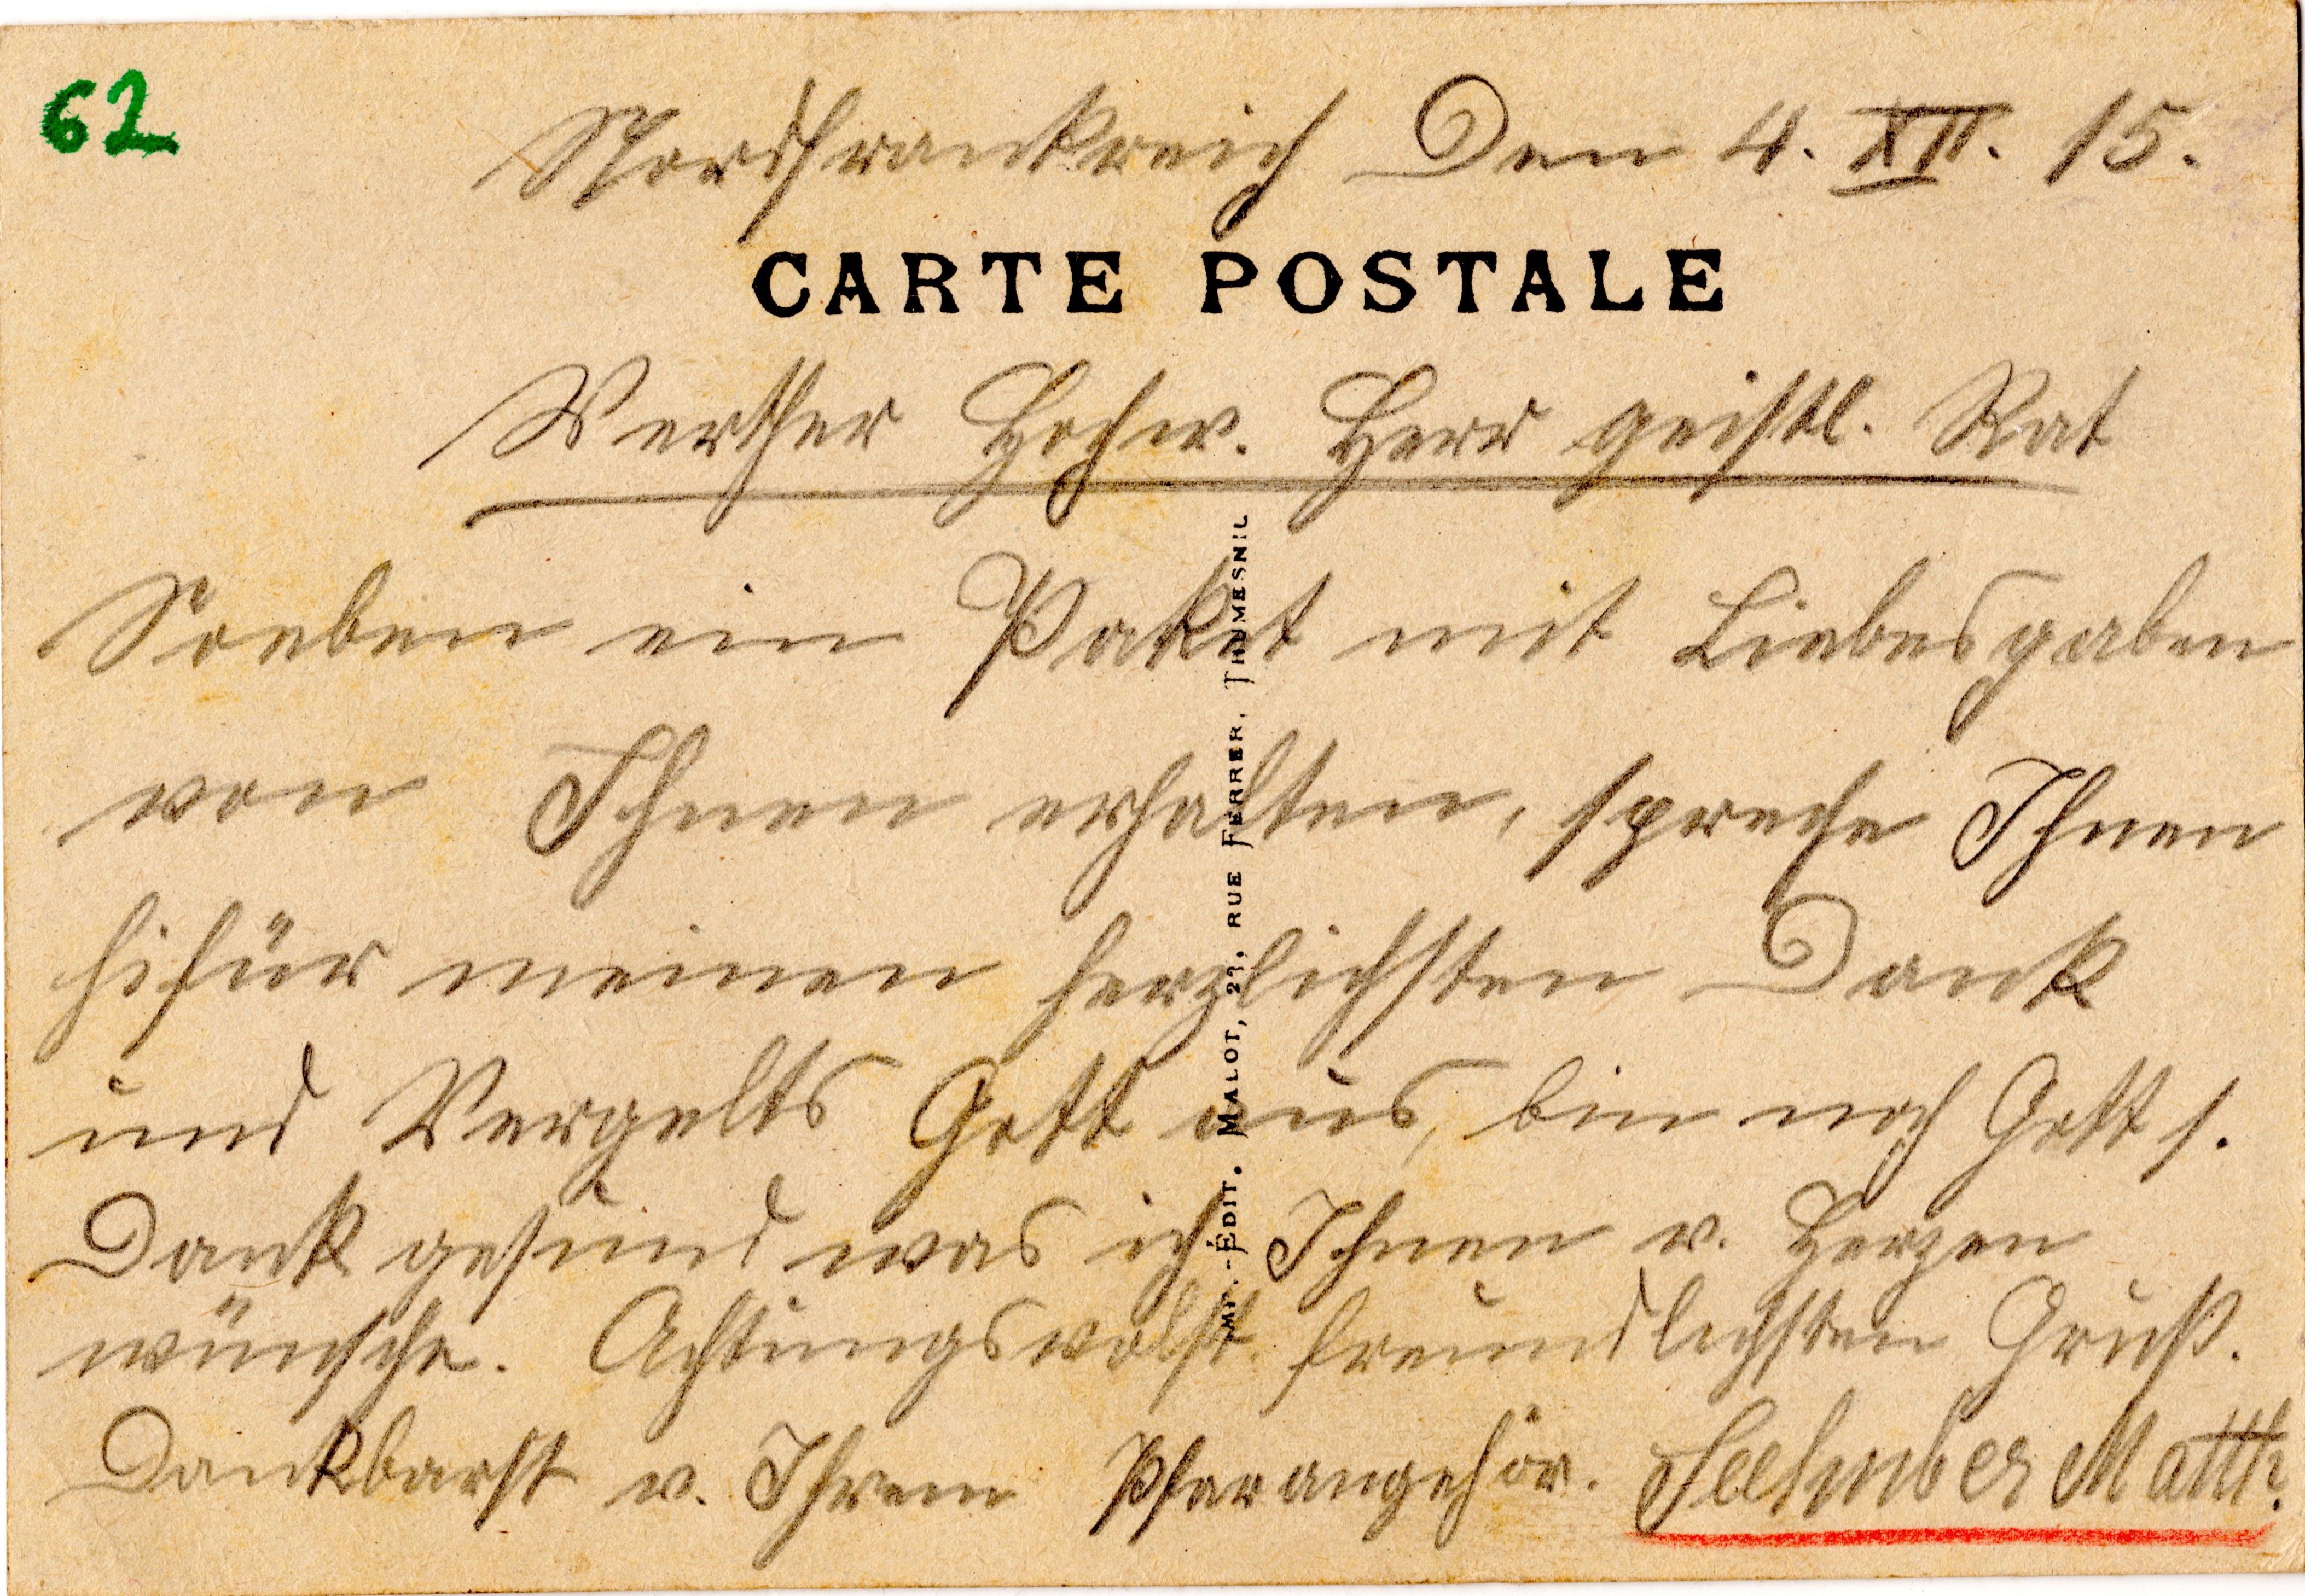 62
Nordfrankreich Den 4. XII. 15.
CARTE POSTALE
Werther Hochw. Herr geistl. Rat
Soeben ein Paket mit Liebesgaben
von Ihnen erhalten, spreche Ihnen
hifür meinen herzlichsten Dank
und Vergelts Gott aus, bin noch Gott s.
Dank gesund was ich Ihnen v. Herzen
wünsche. Achtungsvolst. freundlichsten Gruß.
Dankbarst v. Ihrem Pfarangehör. Matth.
Imp.-Édit. Malot, 23, rue Ferrer, Thumesnil